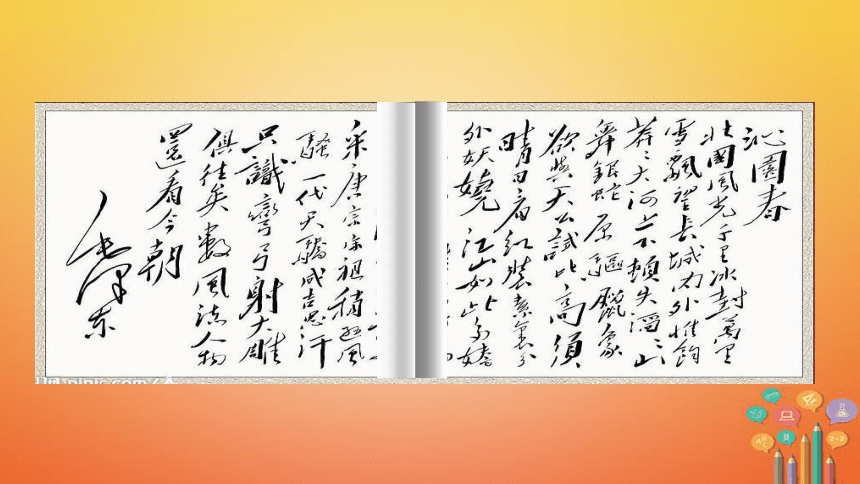 沁園春
北國風光千里冰封萬里
雪飄望長城內外惟餘
莽々大河上下頓失滔々山
舞銀蛇原驅臘象
欲與天公試比高須
晴日看紅裝素裹分
外妖嬈江山如此多嬌
采唐宗宋祖稍遜風
騷一代天驕成吉思汗
只識彎弓射大雕
俱往矣數風流人物
還看今朝
毛澤東